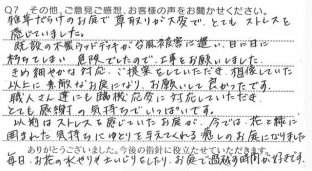 Q7 その他、ご意見ご感想、お客様の声をお聞かせください。
雑草だらけのお庭で草取りが大変で、とてもストレスを
感じていました。
既設の木製ウッドデッキが台風被害に遭い、日に日に
朽ちてしまい危険でしたので、工事をお願いしました。
きめ細やかな対応、ご提案をしていただき、想像していた
以上に素敵なお庭になり、お願いして良かったです。
職人さん達にも臨機応変に対応していただき、
とても感謝の気持ちでいっぱいです。
以前はストレスを感じていたお庭が、今では、花と緑に
囲まれた気持ちにゆとりを与えてくれる癒しのお庭になりました
ありがとうございました。今後の指針に役立たせていただきます。
毎日、お花の水やりや土いじりをしたり、お庭で過ごす時間が好きです。